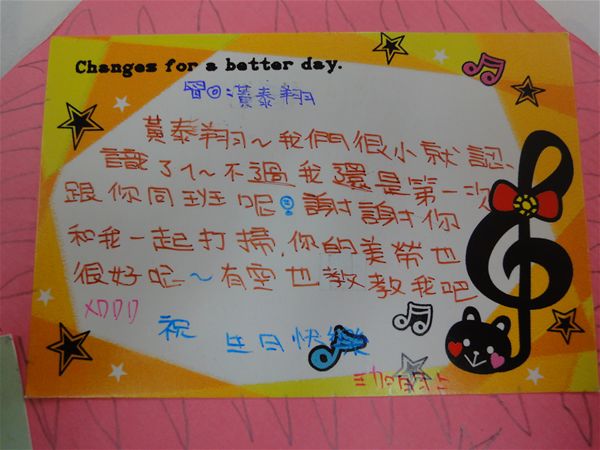 Changes for a better day.
To:黃泰翔
黃泰翔～我們很小就認
識了ㄟ～不過我還是第一次
跟你同班呢!謝謝你
和我一起打掃,你的美勞也
很好呢～有空也教教我吧
XDDD
祝
生日快樂
上